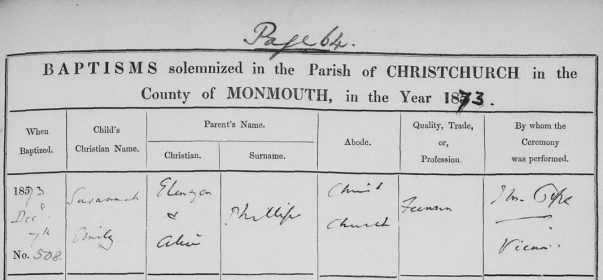 Page 64.
BAPTISMS solemnized in the Parish of CHRISTCHURCH in the
County of MONMOUTH, in the Year 1873.
When
Baptized.
Child's
Christian Name.
Parent's Name.
Christian.
Surname.
Abode.
Quality, Trade,
or,
Profession.
By whom the
Ceremony
was performed.
1873
Decr
7th
No. 508.
Susannah
Emily
&
Phillips
Christ
Church
Vicar.